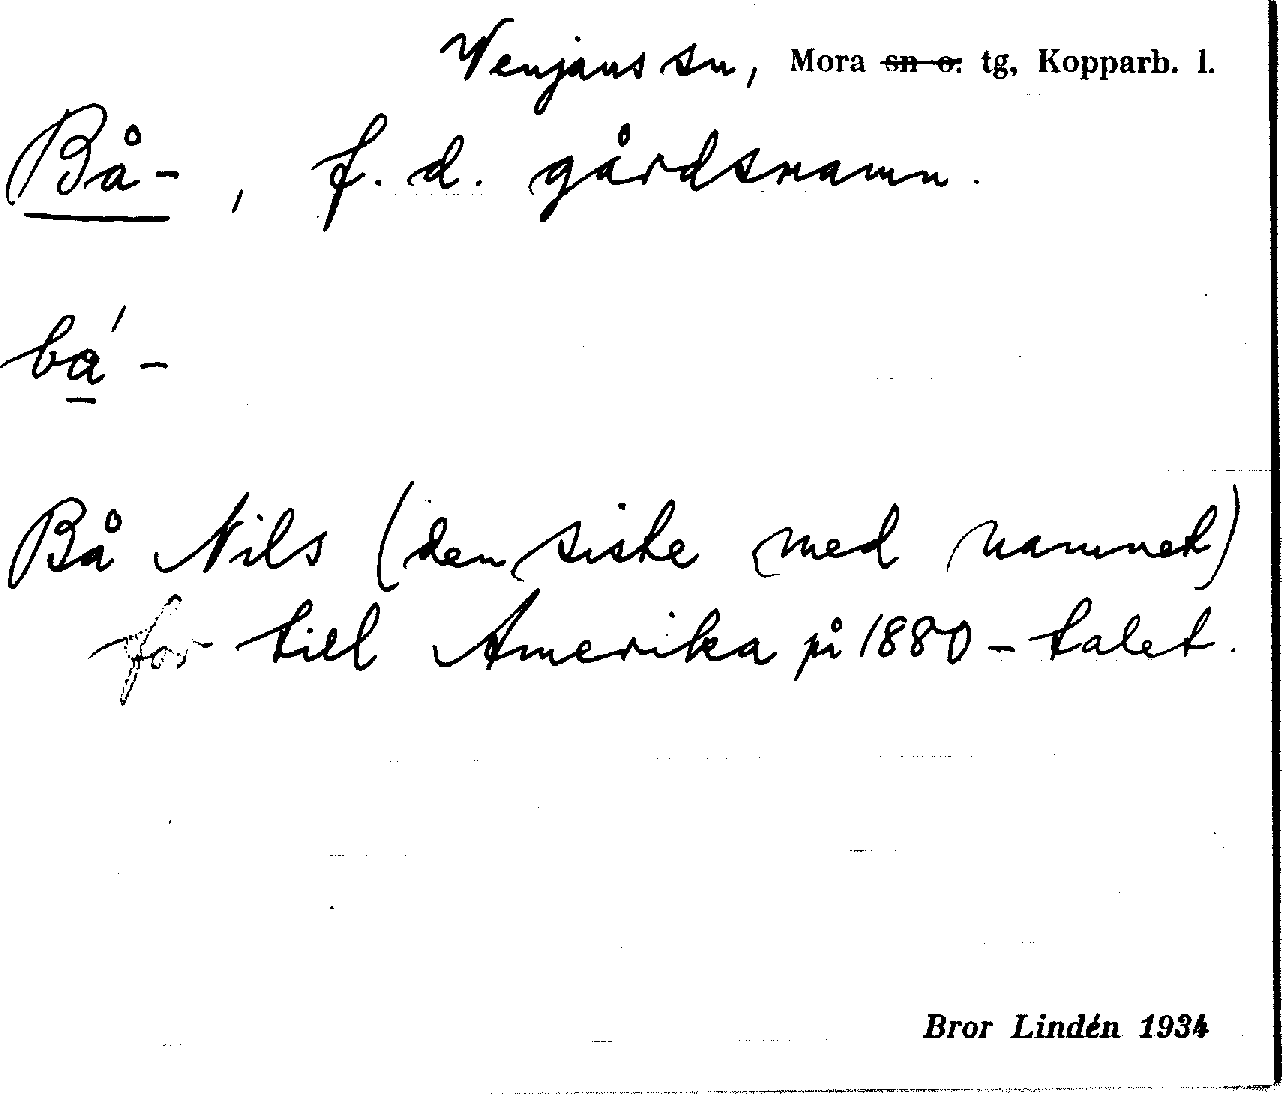 Venjans sn, Mora sn o. tg, Kopparb. l.
Bå-, f. d. gårdsnamn.
bá-
Bå Nils (den siste med namnet)
for till Amerika på 1880-talet.
Bror Lindén 1934